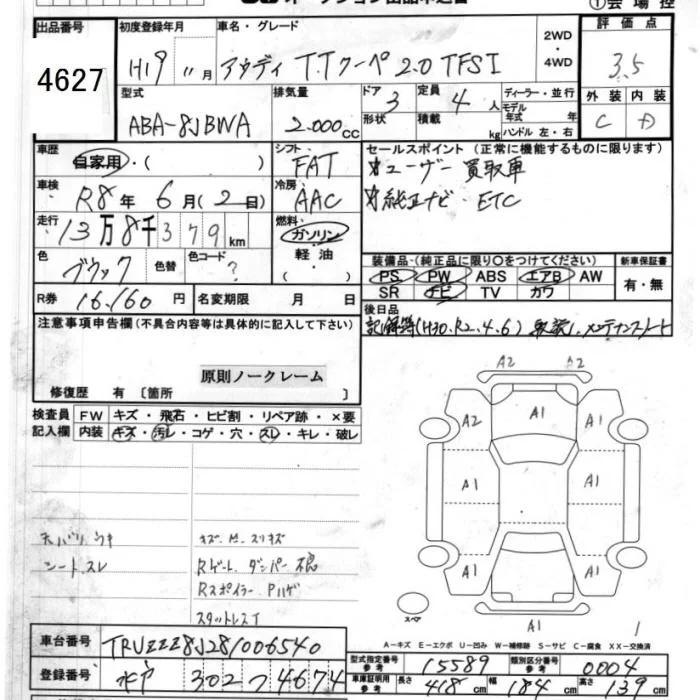 ①会場控
出品番号 初度登録年月 車名・グレード 2WD・4WD 評価点
4627 H19 11月 アウディ TTクーペ 2.0 TFSI 3.5
型式 排気量 ドア 3 定員 4人 ディーラー・並行 外装 内装
ABA-8JBWA 2.000cc 形状 積載 kg モデル年式 年 ハンドル 左・右 C D
車歴 自家用・( ) シフト FAT セールスポイント(正常に機能するものに限ります)
車検 R8年 6月(2日) 冷房 AAC ☆ユーザー買取車
☆純正ナビ・ETC
走行 13万8千379km 燃料 ガソリン・軽油・( )
色 ブラック 色替 色コード ?
装備品・(純正品に限り〇をつけてください) 新車保証書
PS PW ABS エアB AW 有・無
SR ナビ TV カワ
R券 16,160円 名変期限 月 日
後日品
記録簿(H30.R2.4.6) 取説、メンテナンスノート
注意事項申告欄(不具合内容等は具体的に記入して下さい)
原則ノークレーム
修復歴 有〔箇所 〕
検査員記入欄 FW キズ・飛石・ヒビ割・リペア跡・×要
内装 キズ・汚レ・コゲ・穴・スレ・キレ・破レ
A2 A2
A2 A1 A1
A1 A1
A1 A1
A1
天バリ ウキ
シートスレ
キズ・ピースリキズ
Rゲートダンパー不良
Rスポイラー Pハゲ
スタットレスT
スペア
1
A-キズ E-エクボ U-凹み W-補修跡 S-サビ C-腐食 XX-交換済
車台番号 TRUZZZ8J281006540
登録番号 水戸 302 つ 4674
型式指定番号 参考 15589 類別区分番号 参考 0004
車庫証明用 参考 長さ 418cm 幅 184cm 高さ 139cm